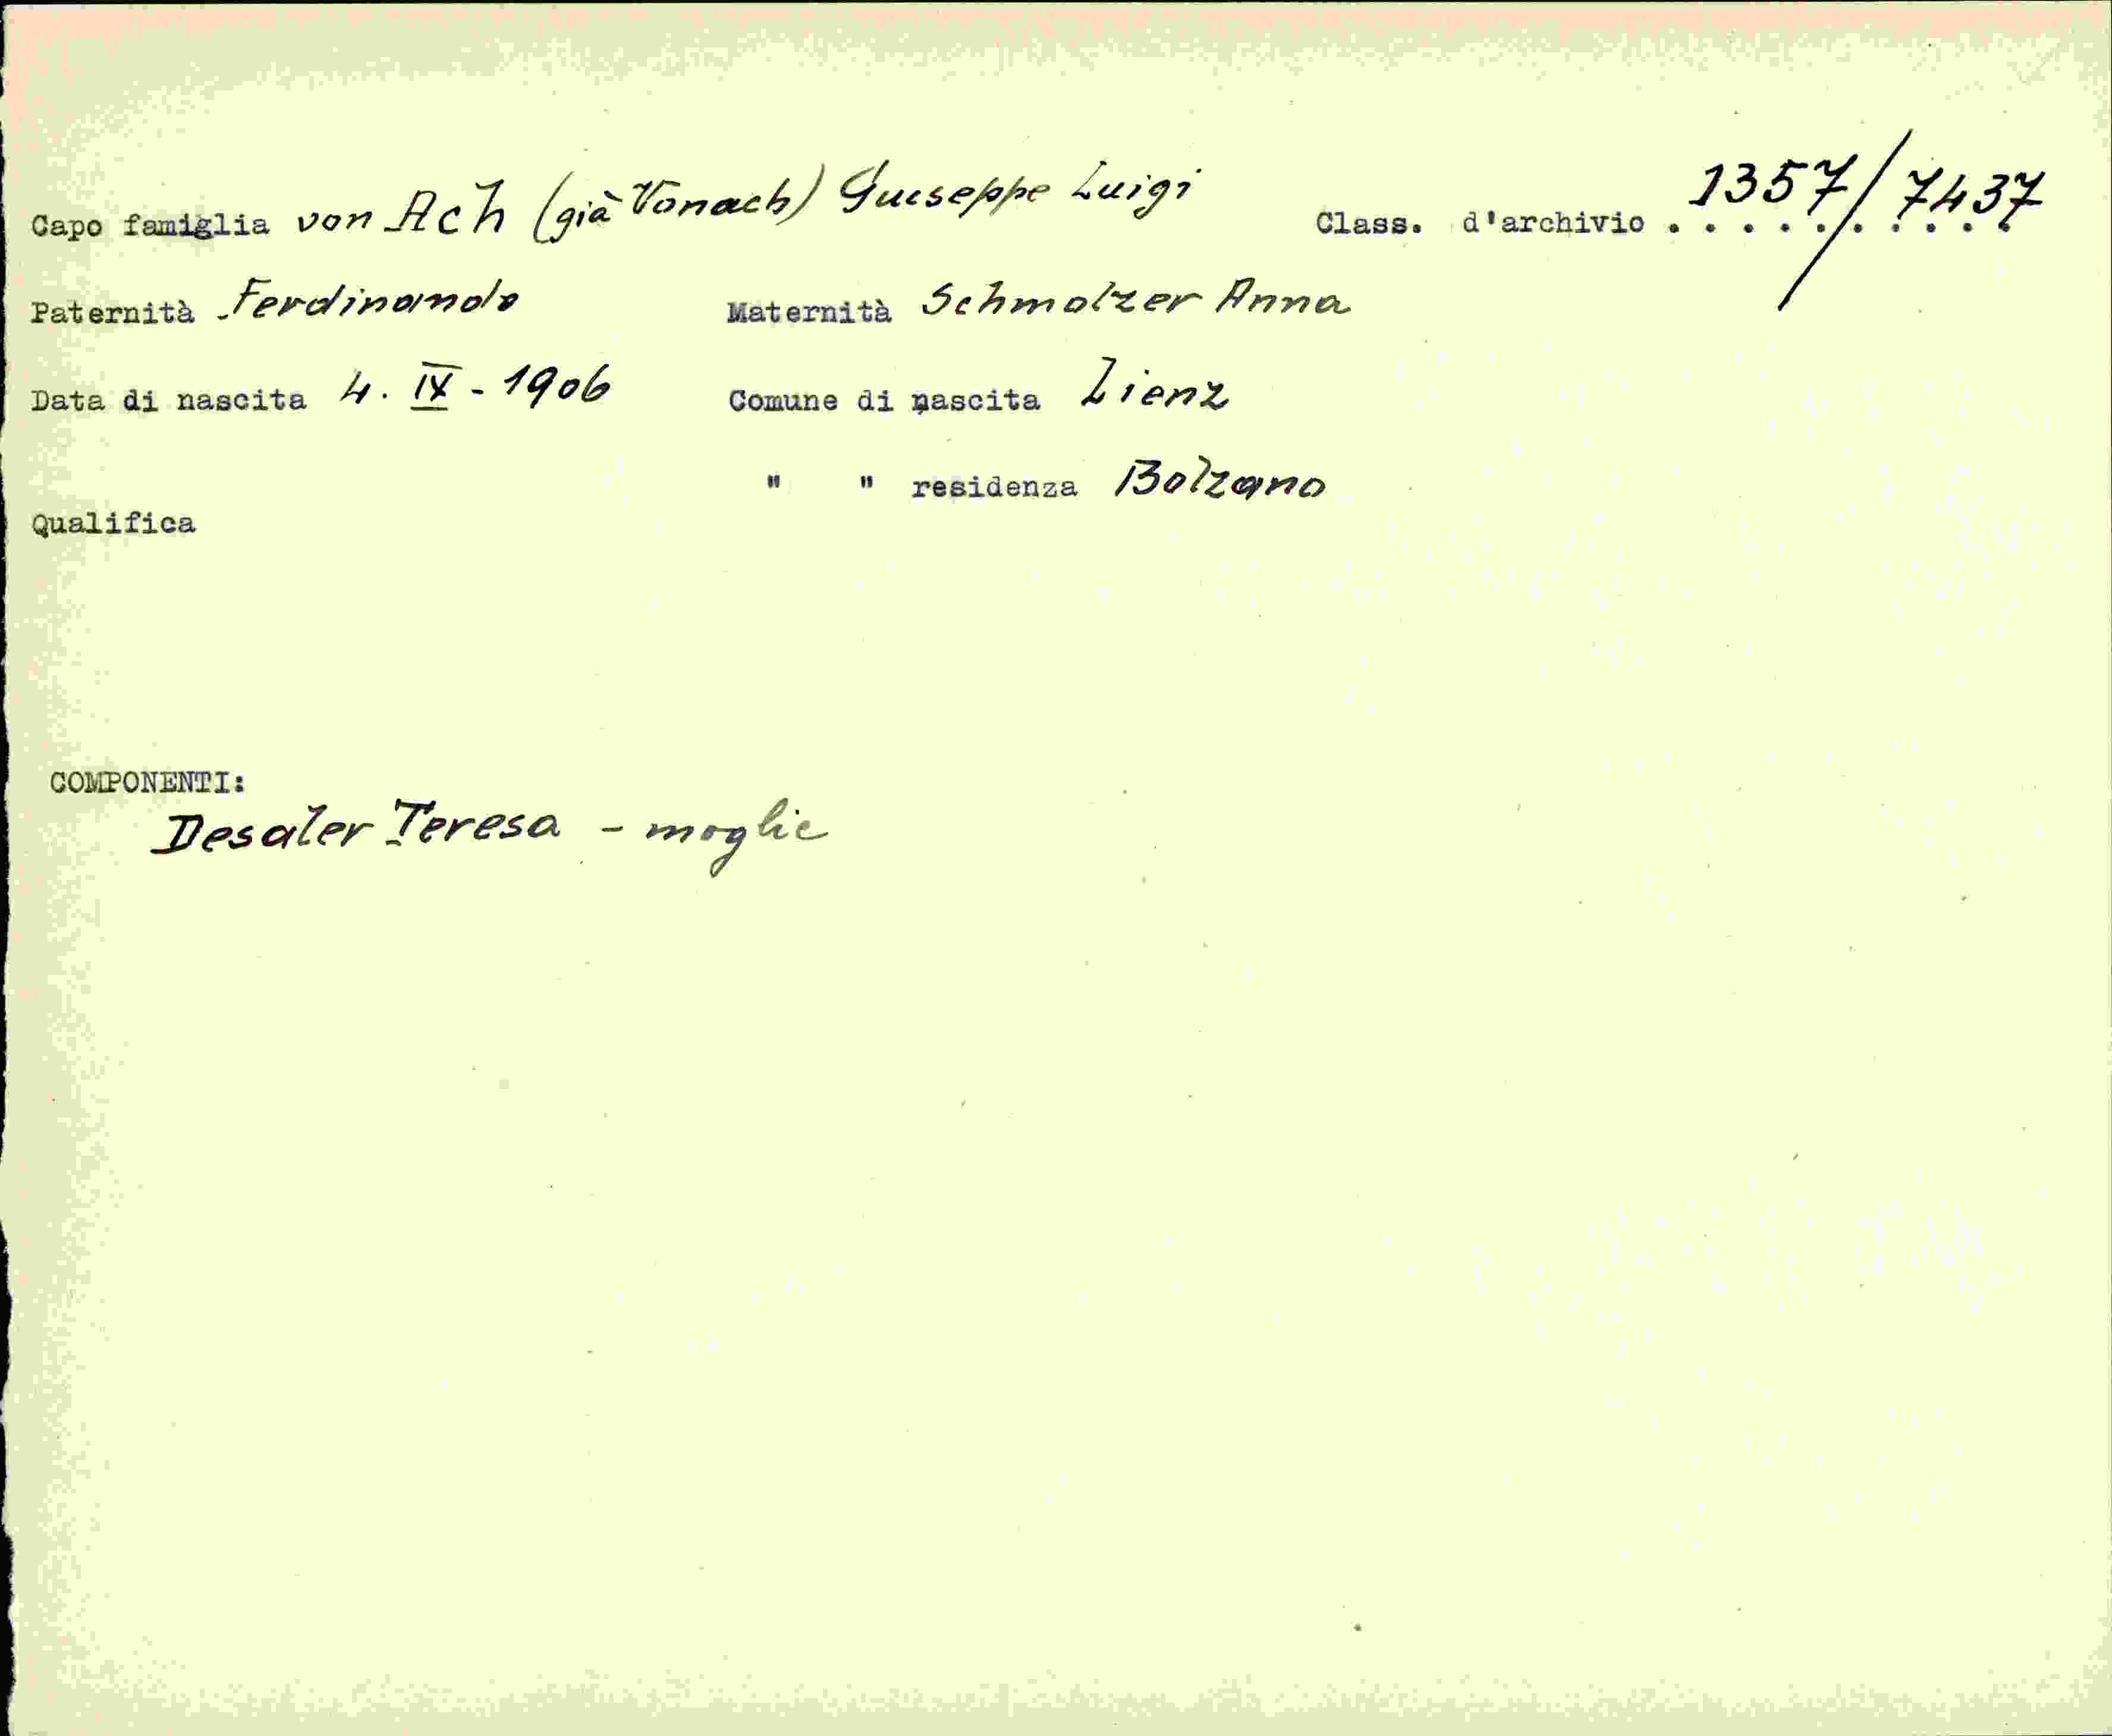 Capo famiglia von Ach (già Vonach) Guiseppe Luigi Class. d'archivio 1357/7437
Paternità Ferdinando Maternità Schmolzer Anna
Data di nascita 4. IX - 1906 Comune di nascita Lienz
" " residenza Bolzano
Qualifica
COMPONENTI:
Desaler Teresa - moglie